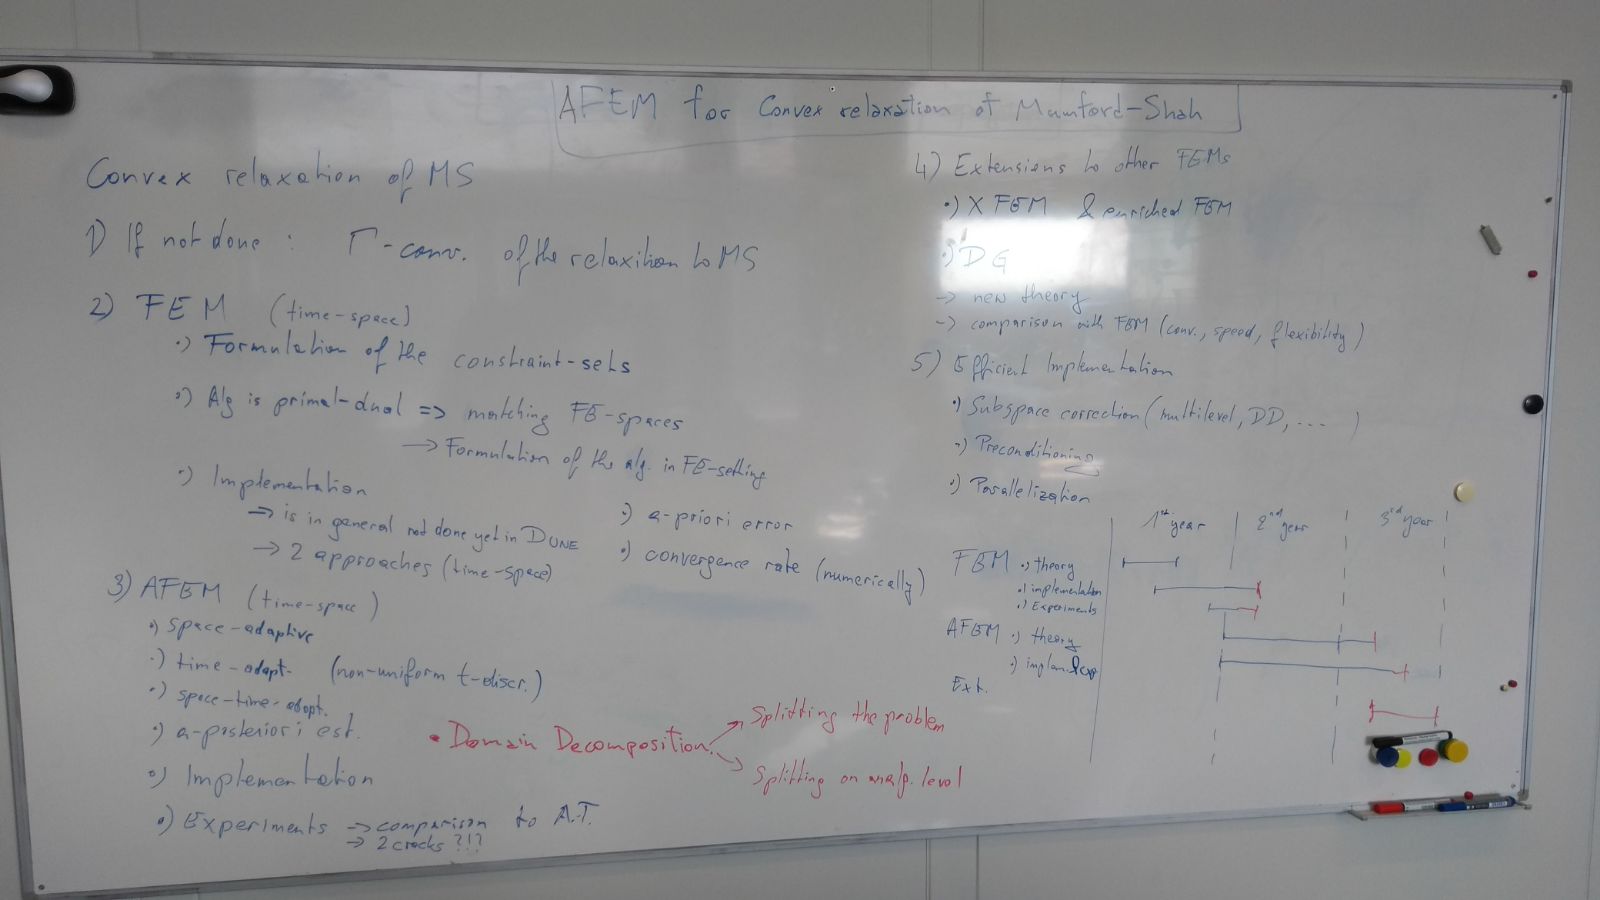 AFEM for Convex relaxation of Mumford-Shah
Convex relaxation of MS
1) If not done : Γ-conv. of the relaxition to MS
2) FEM (time-space)
•) Formulation of the constraint-sets
•) Alg is primal-dual => matching FE-spaces
→ Formulation of the alg. in FE-setting
•) Implementation
→ is in general not done yet in DUNE
→ 2 approaches (time-space)
•) a-priori error
•) convergence rate (numerically)
3) AFEM (time-space)
•) space-adaptive
•) time-adapt. (non-uniform t-discr.)
•) space-time-adapt.
•) a-posteriori est.
•) Implementation
•) Experiments → comparison to A.T.
→ 2 cracks ?!?
• Domain Decomposition
→ Splitting the problem
→ Splitting on level
4) Extensions to other FEMs
•) XFEM & enriched FEM
•) DG
→ new theory
→ comparison with FEM (conv., speed, flexibility)
5) Efficient Implementation
•) Subspace correction (multilevel, DD, ... )
•) Preconditioning
•) Parallelization
1st year 2nd year 3rd year
FEM •) theory
•) implementation
•) Experiments
AFEM •) theory
•) implem. & exp
Ext.